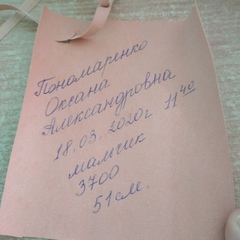 Пономаренко
Оксана
Александровна
18.03.2020г 11 40
мальчик
3700
51 см.